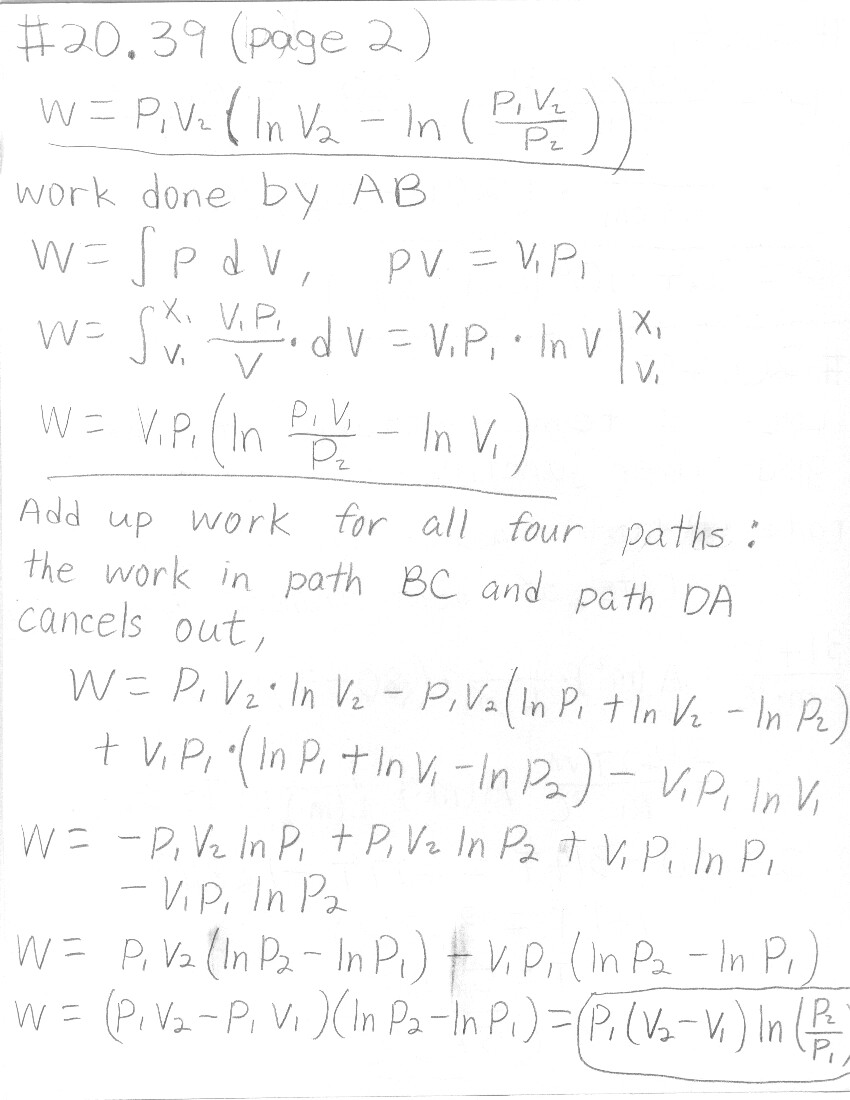 #20.39 (page 2)
W = P₁V₂ (ln V₂ − ln (P₁V₂/P₂))
work done by AB
W = ∫ P dV, PV = V₁P₁
W = ∫_{V₁}^{X₁} V₁P₁/V · dV = V₁P₁ · ln V |_{V₁}^{X₁}
W = V₁P₁ (ln P₁V₁/P₂ − ln V₁)
Add up work for all four paths:
the work in path BC and path DA
cancels out,
W = P₁V₂ · ln V₂ − P₁V₂ (ln P₁ + ln V₂ − ln P₂)
+ V₁P₁ · (ln P₁ + ln V₁ − ln P₂) − V₁P₁ ln V₁
W = −P₁V₂ ln P₁ + P₁V₂ ln P₂ + V₁P₁ ln P₁
− V₁P₁ ln P₂
W = P₁V₂ (ln P₂ − ln P₁) − V₁P₁ (ln P₂ − ln P₁)
W = (P₁V₂ − P₁V₁)(ln P₂ − ln P₁) = P₁(V₂ − V₁) ln (P₂/P₁)